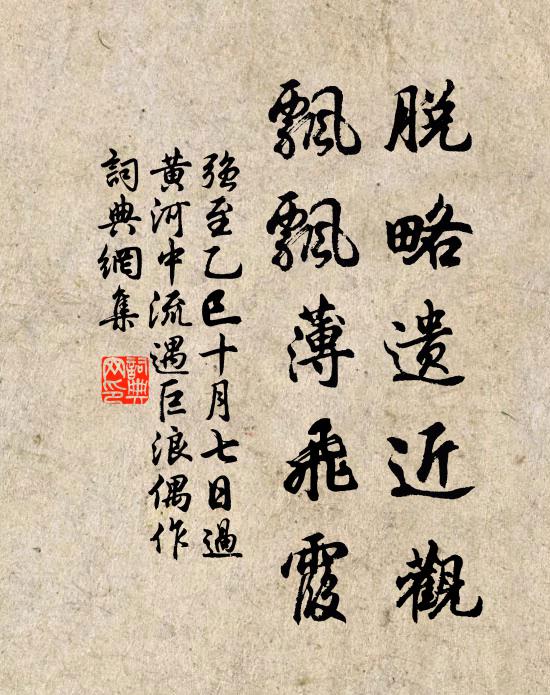 脱略遗近觀
飄飄薄飛霞
强至乙巳十月七日過
黄河中流遇巨浪偶作
詞典網集
詞典
网印